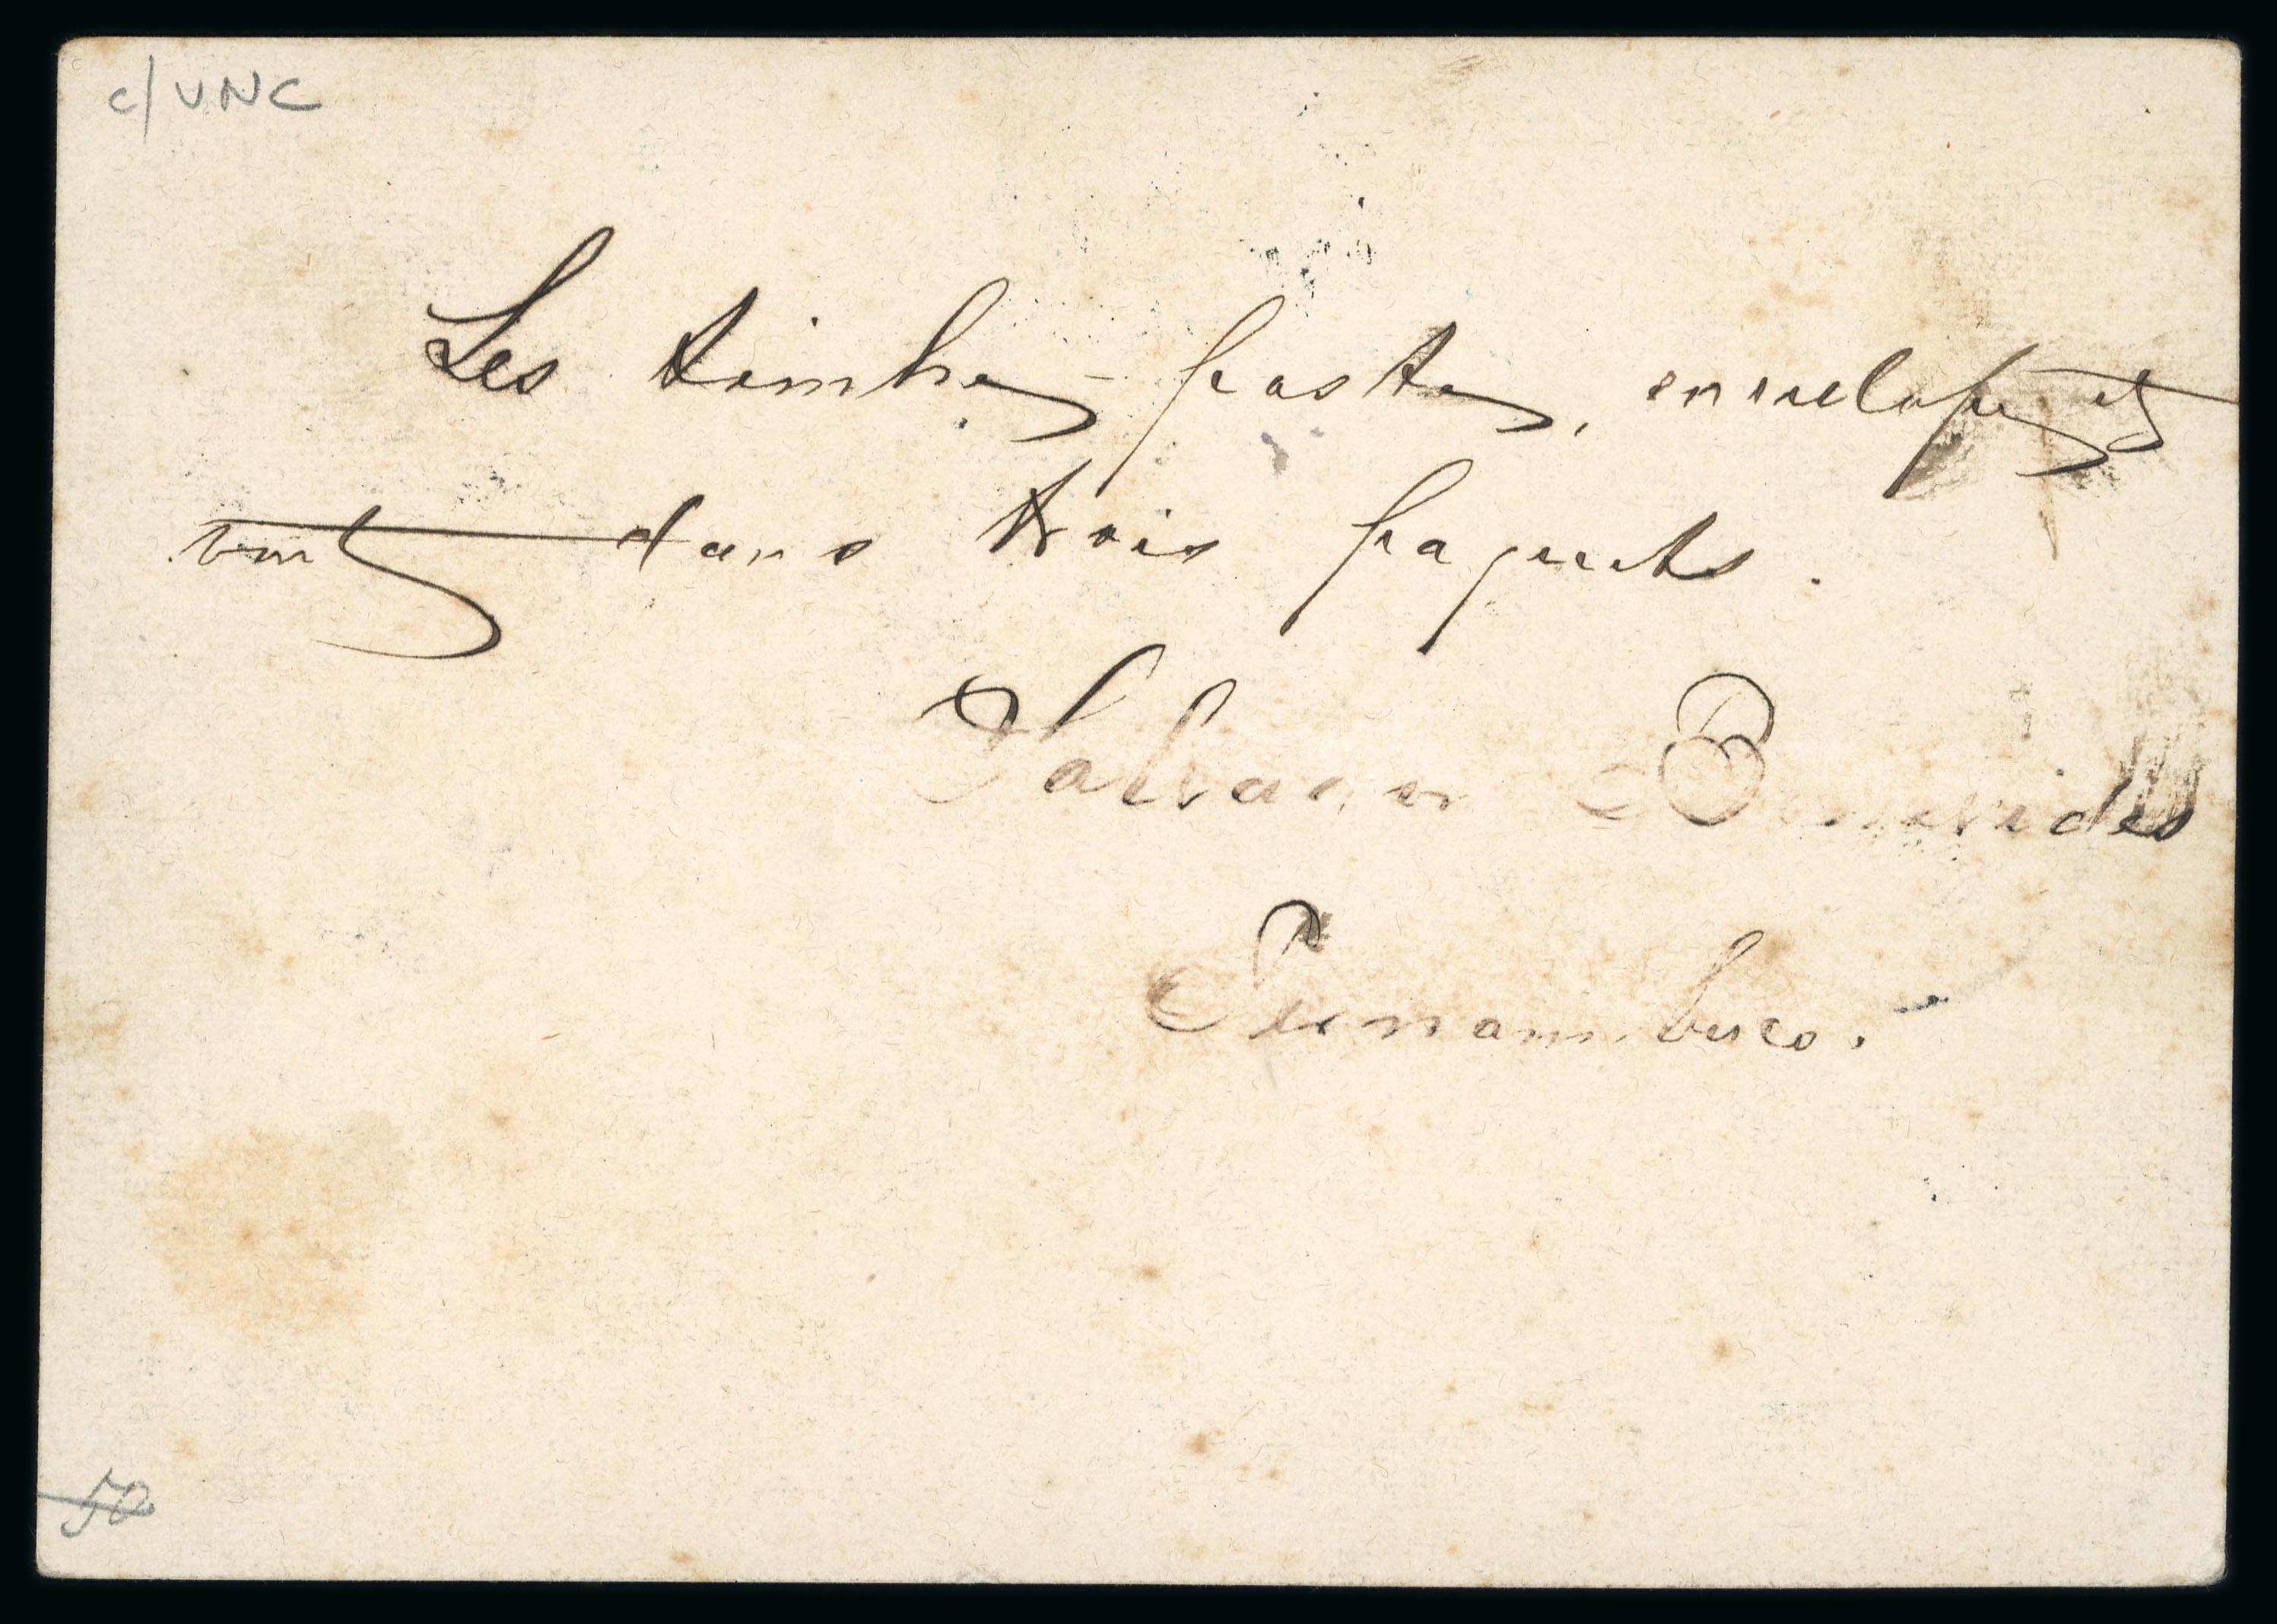 c/ UNC
Les timbres-postes, enveloppes et
sont dans trois paquets.
Salvador Benevides
Pernambuco.
50